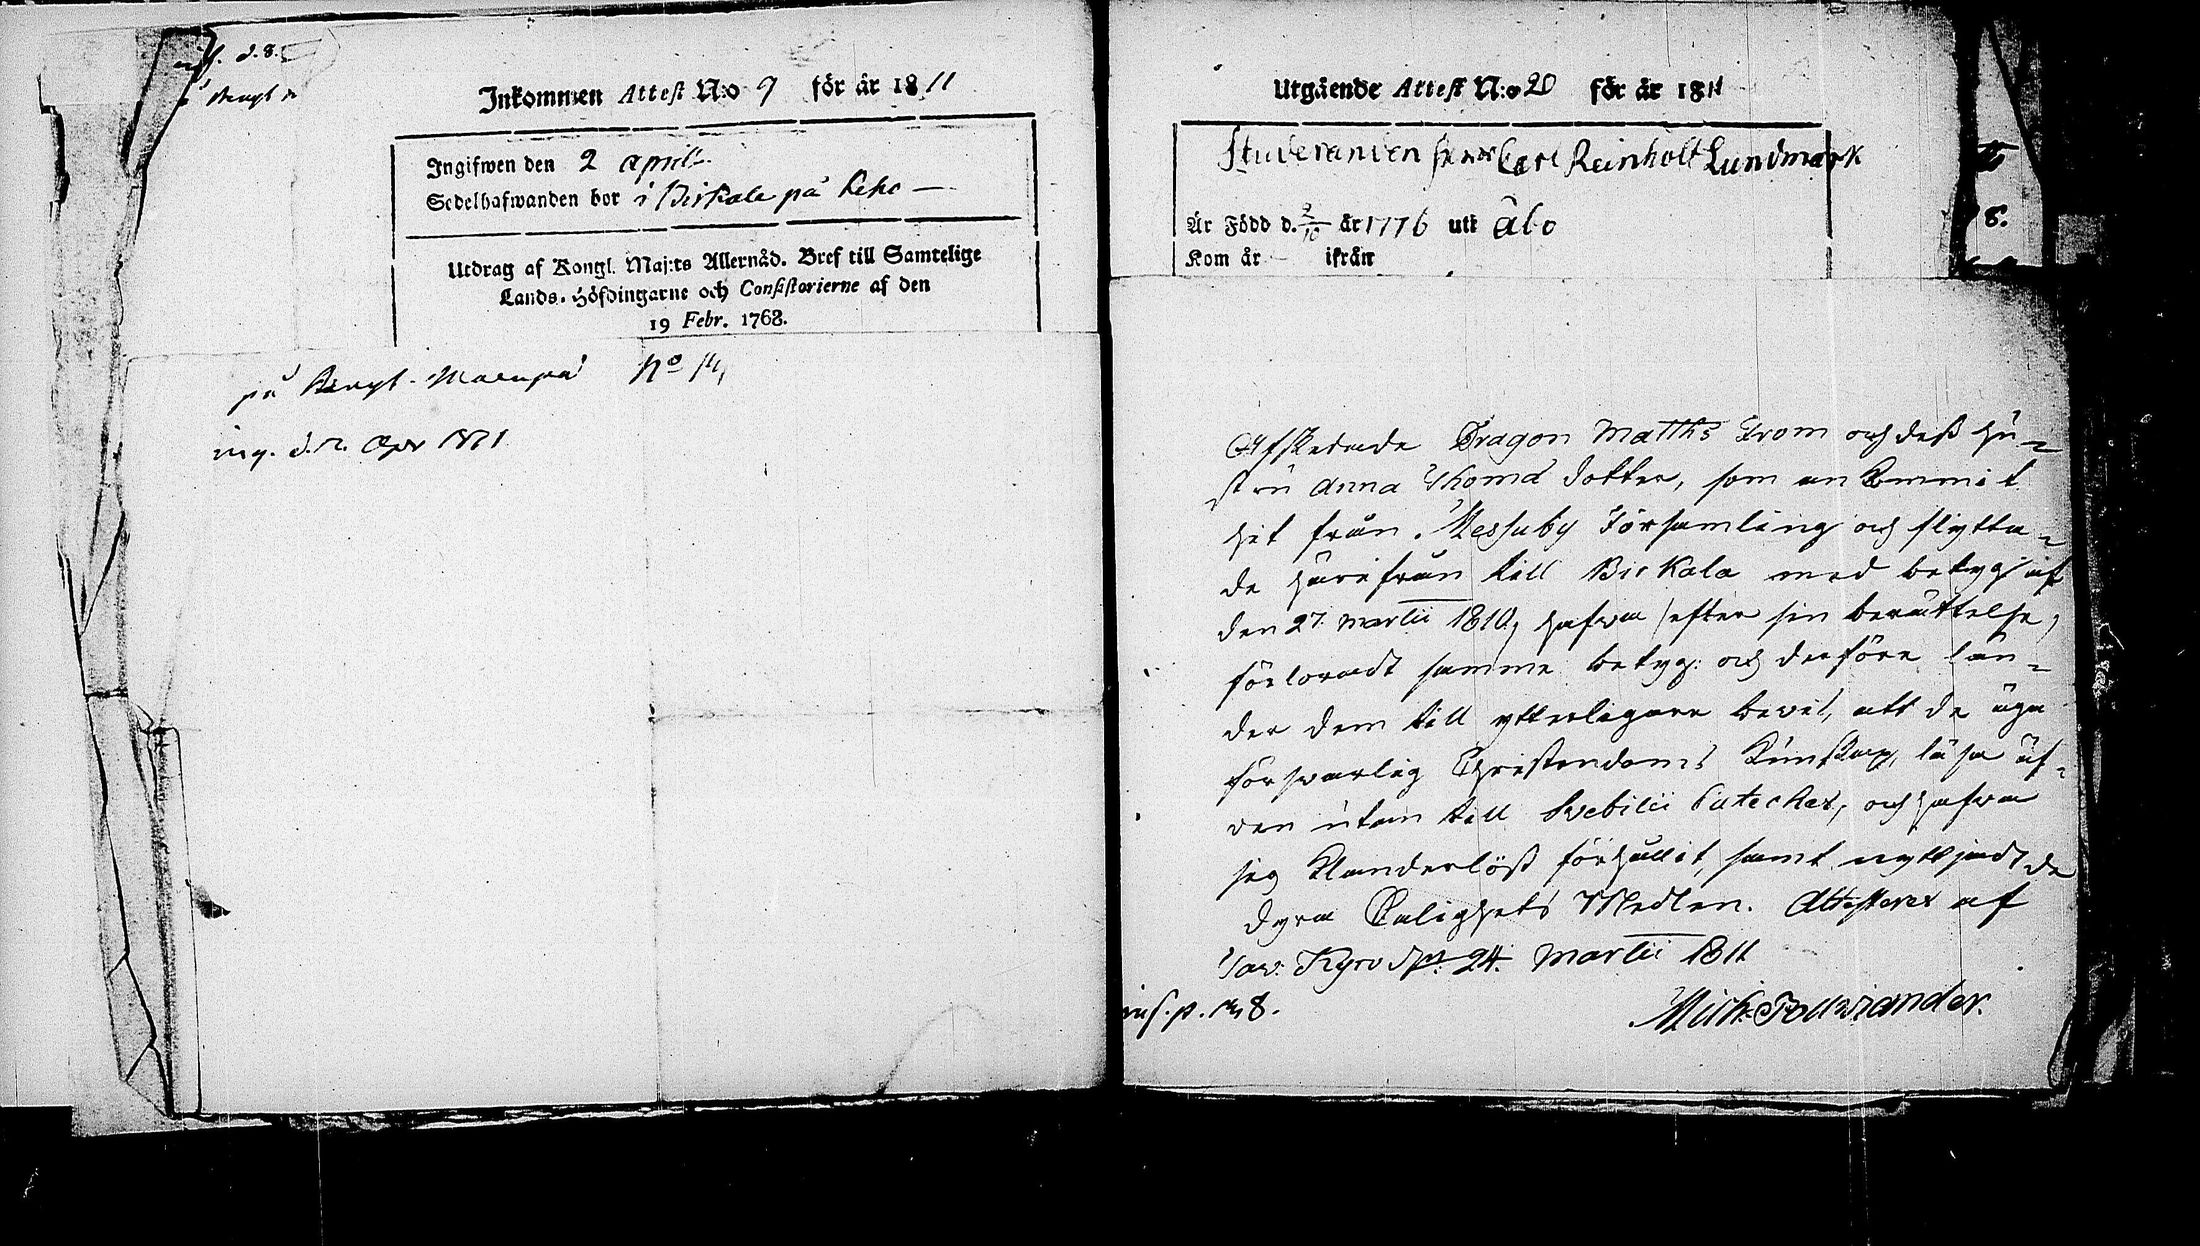 inf. d. 8.
Inkommen Attest N:o 9 för år 1811
Ingifwen den 2 april
Sedelhafwanden bor i Birkala på
Utdrag af Kongl. Maj:ts Allernåd. Bref till Samtelige
Lands-Höfdingarne och Consistorierne af den
19 Febr. 1768.
på No 14,
ing. d. 2. Apr 1811
Utgående Attest N:o 20 för år 1811
Studeranden Herr Carl Reinholt Lundmark
Är Född d. 2/10 år 1776 uti Åbo
Kom år ifrån
8.
Afskedade Dragon Matths From och dess hu-
stru Anna Thomæ dotter, som ankommit
hit från Messuby Församling och flytta-
de härifrån till Birkala med betyg af
den 27. Martii 1810, hafva efter sin berättelse,
förloradt samma betyg: och derföre län-
der dem till ytterligare bevis, att de äga
försvarlig Christendoms Kunskap, läsa äf-
ven utan till Svebilii Cateches, och hafva
sig klanderlöst förhållit, samt nyttjadt de
dyra Salighets Medlen. Attesteras af
Tav. Kyro d. 24. Martii 1811
inf. p. 148.
Mich: